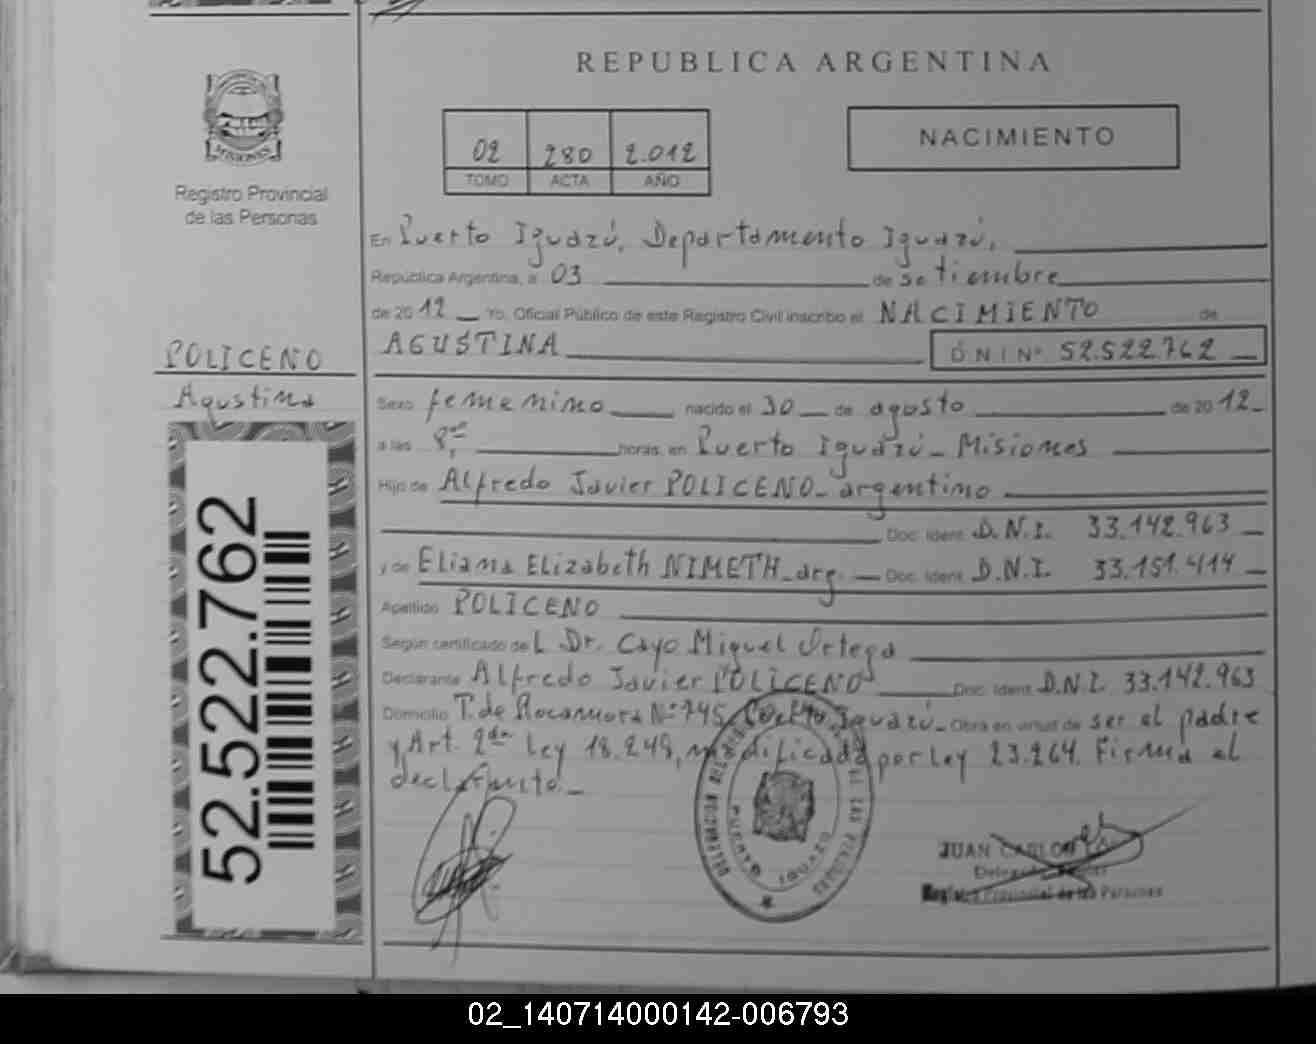 REPUBLICA ARGENTINA
MISIONES
Registro Provincial
de las Personas
02 280 2.012
TOMO ACTA AÑO
NACIMIENTO
En Puerto Iguazú, Departamento Iguazú,
República Argentina, a 03 de setiembre
de 2012 Yo, Oficial Público de este Registro Civil inscribo el NACIMIENTO de
AGUSTINA D N I Nº 52.522.762
POLICENO
Agustina
Sexo femenino nacido el 30 de agosto de 2012
a las 8,00 horas, en Puerto Iguazú - Misiones
Hijo de Alfredo Javier POLICENO - argentino
Doc. Ident. D.N.I. 33.142.963
y de Eliana Elizabeth NIMETH - arg. Doc. Ident. D.N.I. 33.151.414
Apellido POLICENO
Según certificado de L Dr. Cayo Miguel Ortega
Declarante Alfredo Javier POLICENO Doc. Ident. D.N.I. 33.142.963
Domicilio T. de Rocamora Nº 745, Puerto Iguazú - Obra en virtud de ser el padre
y Art. 2do Ley 18.248, modificada por Ley 23.264. Firma el
declarante. -
52.522.762
JUAN CARLOS
Registro Provincial de las Personas
02_140714000142-006793